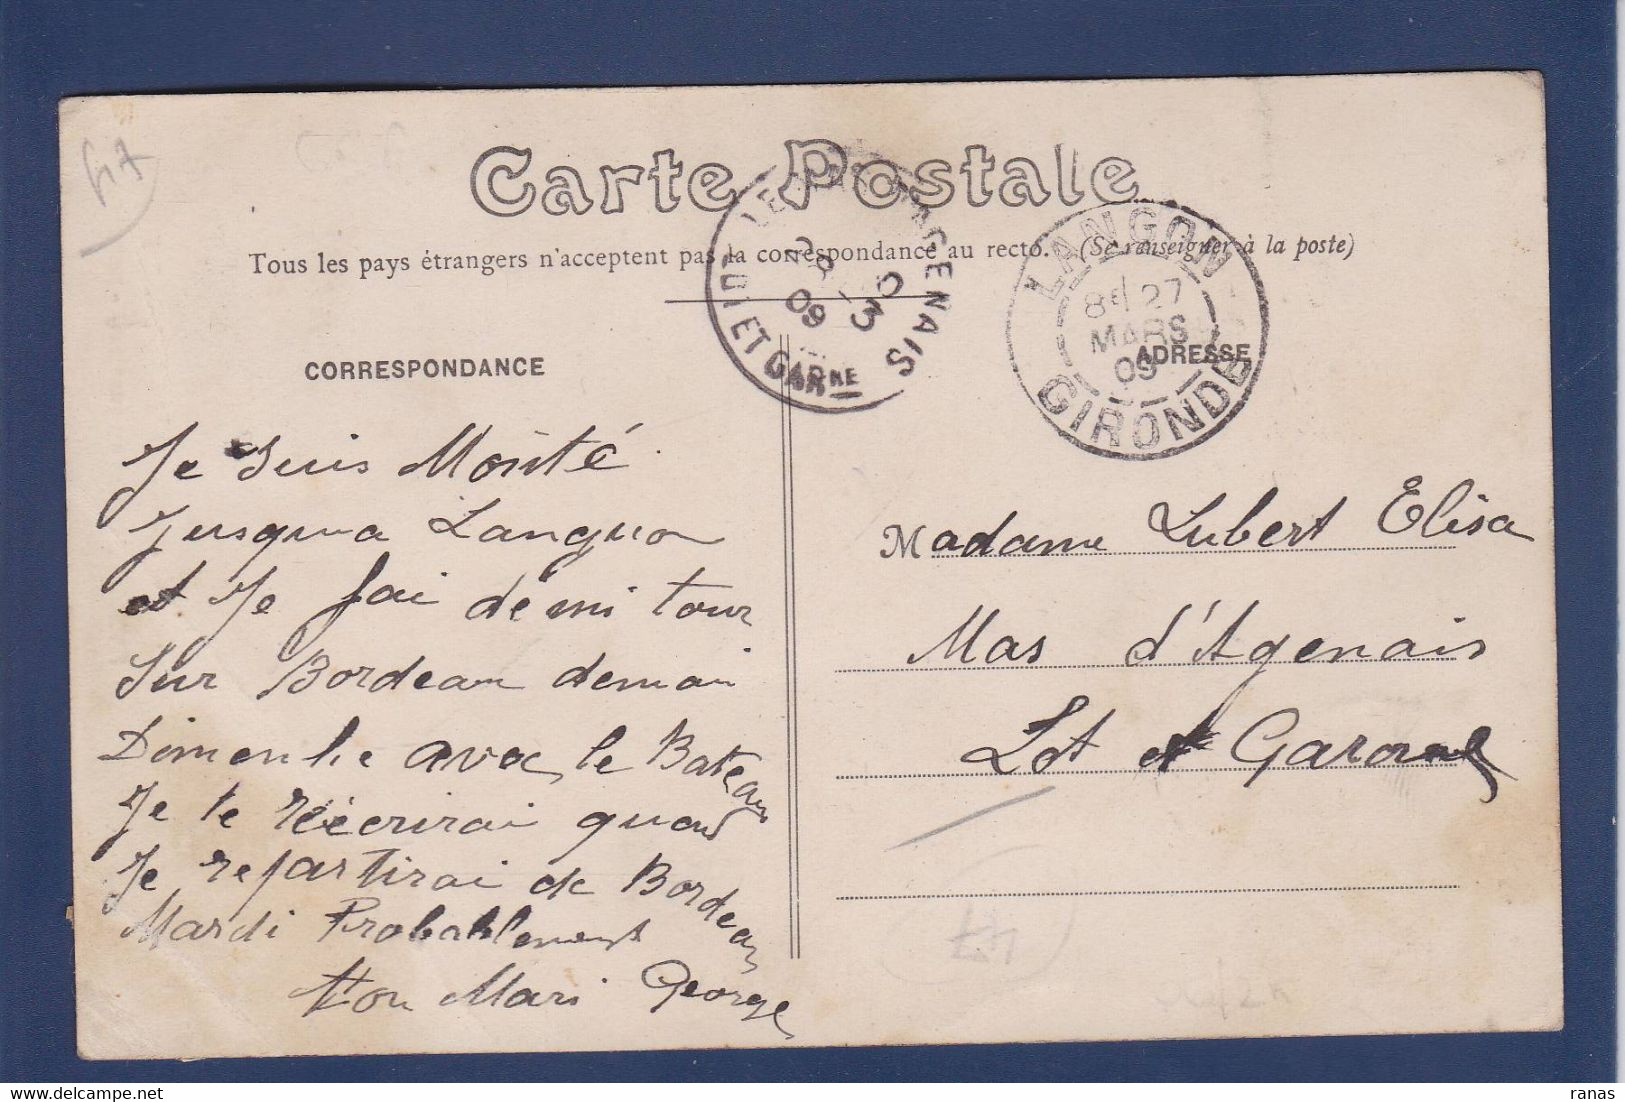 47
Carte Postale
Tous les pays étrangers n'acceptent pas la correspondance au recto. (Se renseigner à la poste)
LE MAS D'AGENAIS
28 - 3
09
LOT ET GARNE
LANGON
8E 27
MARS
09
GIRONDE
CORRESPONDANCE
ADRESSE
Je suis Monté
Jusqua Languon
et Je fai demi tour
Sur Bordeau demain
Dimenhe avec le Bateau
Je te réécrirai quand
Je repartirai de Bordeau
Mardi Probablement
ton Mari George
Madame Lubert Elisa
Mas d'Agenais
Lot et Garonne
47
ranas